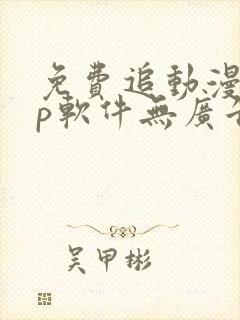 免費追動漫
p軟件無廣告
吳甲彬